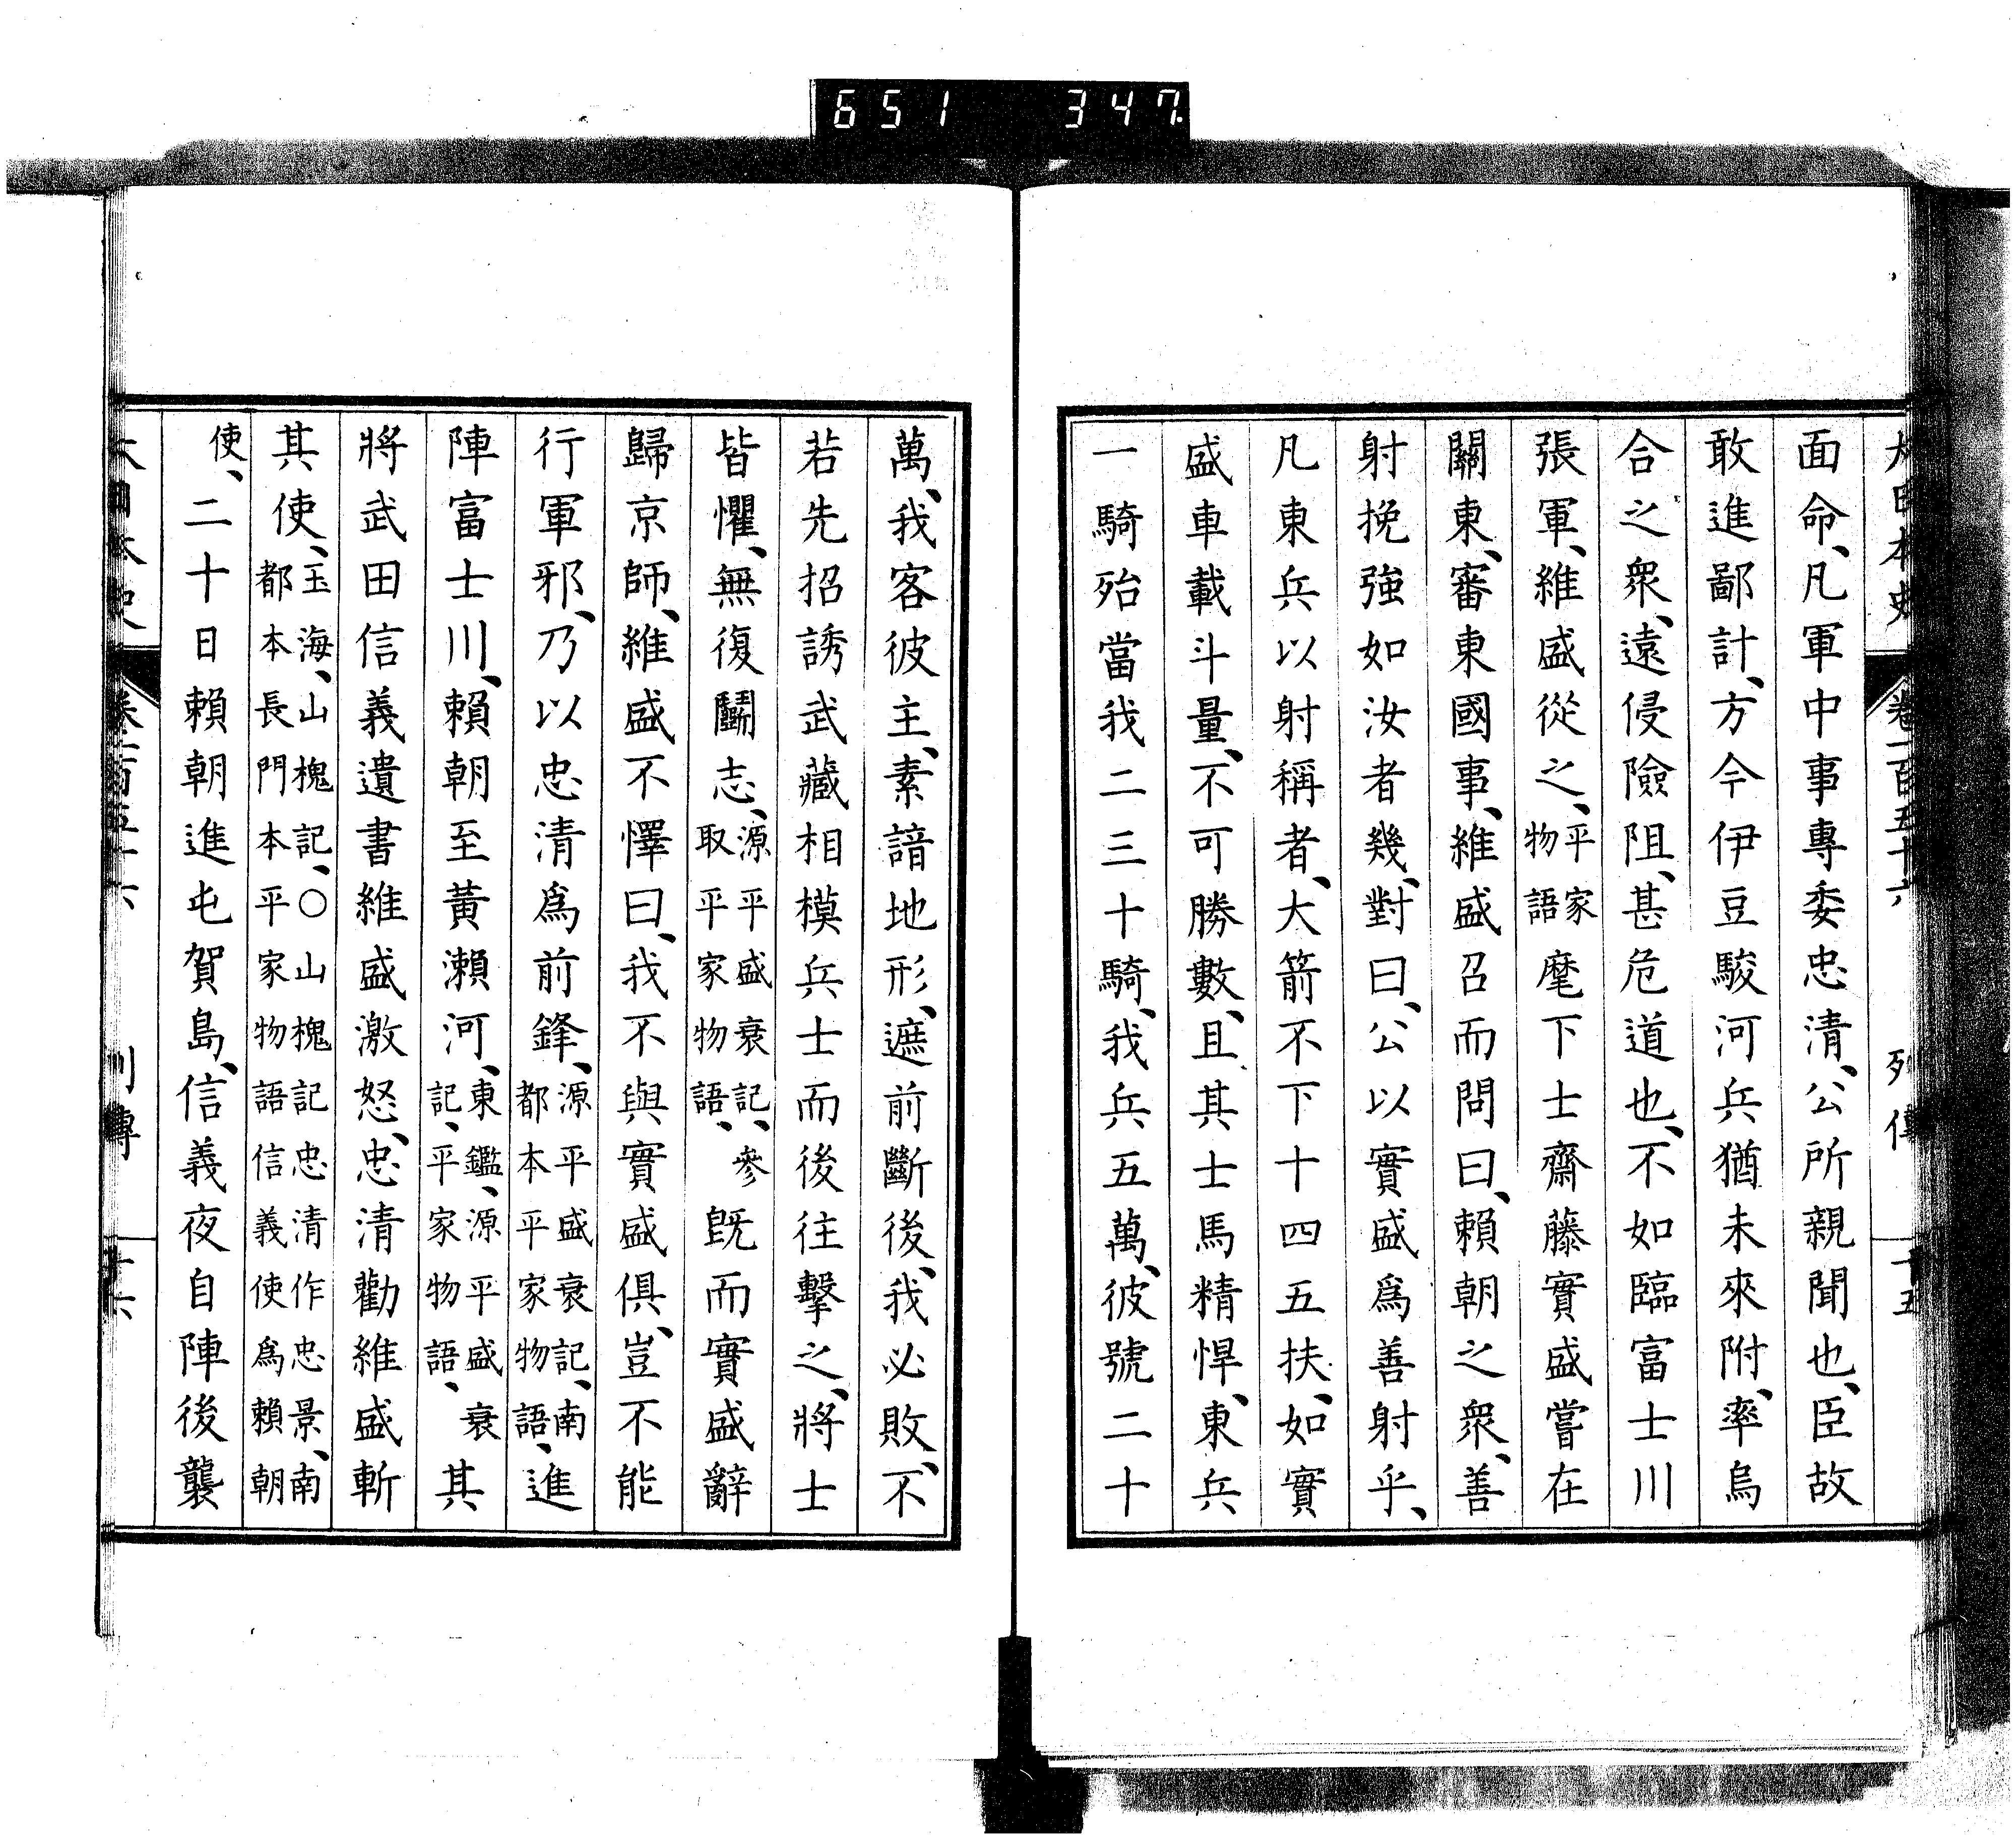 651 347
大日本史 卷一百五十六 列傳 十五
面命、凡軍中事專委忠清、公所親聞也、臣故
敢進鄙計、方今伊豆駿河兵猶未來附、率烏
合之衆、遠侵險阻、甚危道也、不如臨富士川
張軍、維盛從之、平家物語麾下士齋藤實盛嘗在
關東、審東國事、維盛召而問曰、賴朝之衆、善
射挽強如汝者幾、對曰、公以實盛爲善射乎、
凡東兵以射稱者、大箭不下十四五扶、如實
盛車載斗量、不可勝數、且其士馬精悍、東兵
一騎殆當我二三十騎、我兵五萬、彼號二十
萬、我客彼主、素諳地形、遮前斷後、我必敗、不
若先招誘武藏相模兵士而後往擊之、將士
皆懼、無復鬭志、源平盛衰記、參取平家物語、既而實盛辭
歸京師、維盛不懌曰、我不與實盛俱、豈不能
行軍邪、乃以忠清爲前鋒、源平盛衰記、南都本平家物語、進
陣富士川、賴朝至黃瀨河、東鑑、源平盛衰記、平家物語、其
將武田信義遺書維盛激怒、忠清勸維盛斬
其使、玉海、山槐記、○山槐記忠清作忠景、南都本長門本平家物語信義使爲賴朝
使、二十日賴朝進屯賀島、信義夜自陣後襲
大日本史 卷一百五十六 列傳 十六